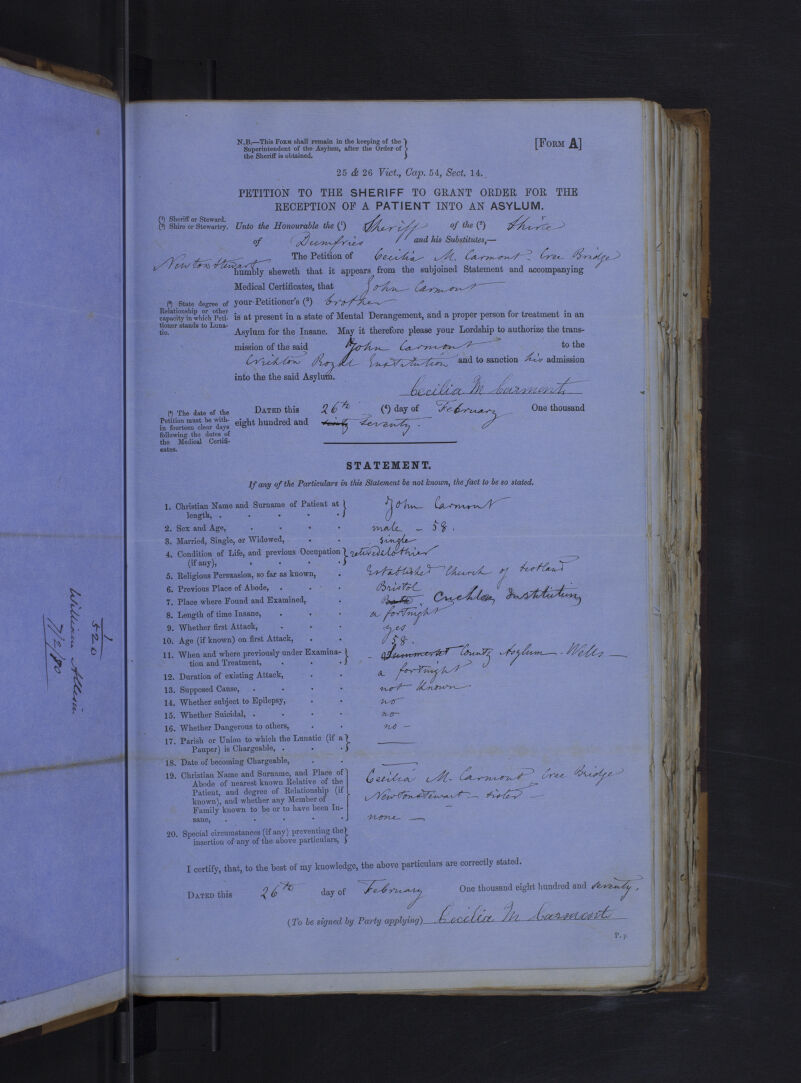 N.B.—This Form shall remain in the keeping of the
Superintendent of the Asylum, after the Order of
the Sheriff is obtained.
[Form A]
25 & 26 Vict., Cap. 54, Sect. 14.
PETITION TO THE SHERIFF TO GRANT ORDER FOR THE
RECEPTION OF A PATIENT INTO AN ASYLUM.
(¹) Sheriff or Steward.
(²) Shire or Stewartry.
Unto the Honourable the (¹) Sheriff of the (²) Shire
of Dumfries and his Substitutes,—
The Petition of Cecilia M. Carmont. Cree Bridge
Newtonstewart
humbly sheweth that it appears from the subjoined Statement and accompanying
Medical Certificates, that John Carmont
(³) State degree of
Relationship or other
capacity in which Peti-
tioner stands to Luna-
tic.
your Petitioner's (³) brother
is at present in a state of Mental Derangement, and a proper person for treatment in an
Asylum for the Insane. May it therefore please your Lordship to authorize the trans-
mission of the said John Carmont to the
Crichton Royal Institution and to sanction his admission
into the the said Asylum.
Cecilia M Carmont
(⁴) The date of the
Petition must be with-
in fourteen clear days
following the dates of
the Medical Certifi-
cates.
Dated this 26th (⁴) day of February One thousand
eight hundred and sixty seventy.
STATEMENT.
If any of the Particulars in this Statement be not known, the fact to be so stated.
1. Christian Name and Surname of Patient at length, . John Carmont
2. Sex and Age, male - 58.
3. Married, Single, or Widowed, single
4. Condition of Life, and previous Occupation (if any), retired clothier
5. Religious Persuasion, so far as known, Established Church of Scotland
6. Previous Place of Abode, Bristol
7. Place where Found and Examined, Crichton Institution
8. Length of time Insane, a fortnight
9. Whether first Attack, yes
10. Age (if known) on first Attack, 58.
11. When and where previously under Examina-
tion and Treatment, - Summerset County Asylum. Wells —
12. Duration of existing Attack, a fortnight
13. Supposed Cause, not known
14. Whether subject to Epilepsy, no
15. Whether Suicidal, no
16. Whether Dangerous to others, no —
17. Parish or Union to which the Lunatic (if a
Pauper) is Chargeable, —
18. Date of becoming Chargeable, —
19. Christian Name and Surname, and Place of
Abode of nearest known Relative of the
Patient, and degree of Relationship (if
known), and whether any Member of
Family known to be or to have been In-
sane,
Cecilia M. Carmont Cree Bridge
Newtonstewart — sister —
none —
20. Special circumstances (if any) preventing the
insertion of any of the above particulars,
I certify, that, to the best of my knowledge, the above particulars are correctly stated.
Dated this 26th day of February One thousand eight hundred and seventy.
(To be signed by Party applying) Cecilia M Carmont
520
William
7/2/80